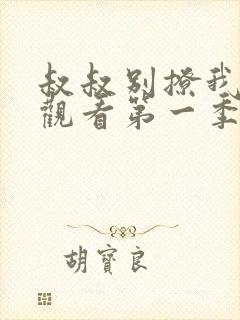 叔叔別撩我
觀看第一季
胡寶良